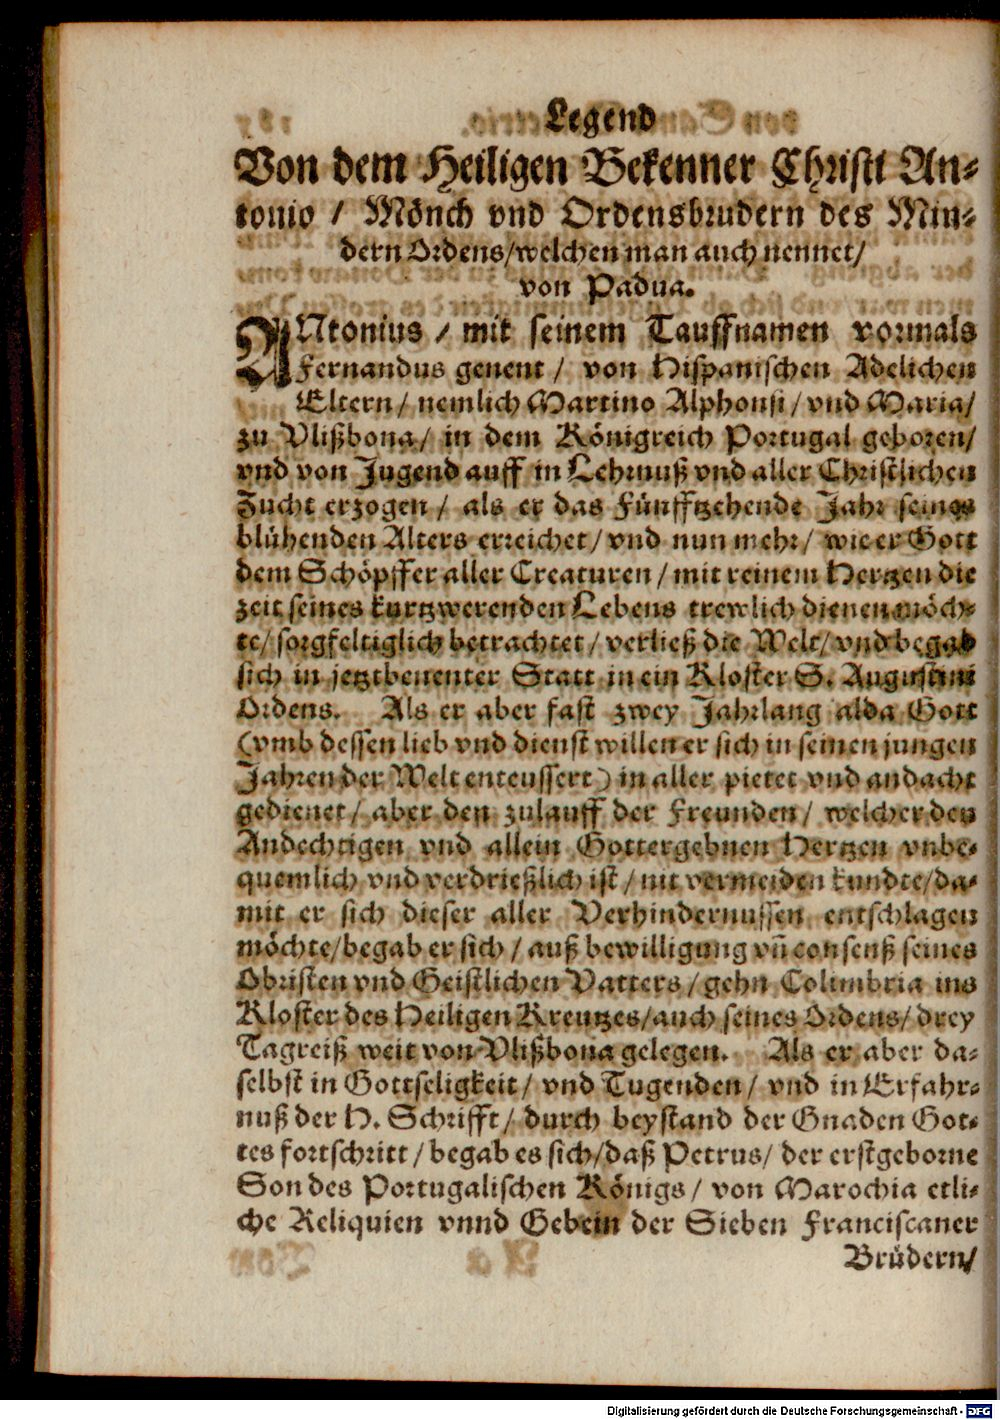 Legend
Von dem Heiligen Bekenner Christi An-
tonio / Mönch vnd Ordensbrudern des Min-
dern Ordens/welchen man auch nennet/
von Padua.
ANtonius / mit seinem Tauffnamen vormals
Fernandus genent / von Hispanischen Adelichen
Eltern / nemlich Martino Alphonsi / vnd Maria/
zu Vlißbona / in dem Königreich Portugal geboren/
vnd von Jugend auff in Lehrnuß vnd aller Christlichen
Zucht erzogen / als er das Fünfftzehende Jahr seines
blühenden Alters erreichet / vnd nun mehr / wie er Gott
dem Schöpffer aller Creaturen / mit reinem Hertzen die
zeit seines kurtzwerenden Lebens trewlich dienen möch-
te/ sorgfeltiglich betrachtet / verließ die Welt/ vnd begab
sich in jetztbenenter Statt in ein Kloster S. Augustini
Ordens. Als er aber fast zwey Jahrlang alda Gott
(vmb dessen lieb vnd dienst willen er sich in seinen jungen
Jahren der Welt enteussert) in aller pietet vnd andacht
gedienet / aber den zulauff der Freunden / welcher den
Andechtigen vnd allein Gottergebnen Hertzen vnbe-
quemlich vnd verdrießlich ist / nit vermeiden kundte/da-
mit er sich dieser aller Verhindernussen entschlagen
möchte/begab er sich / auß bewilligung vñ consenß seines
Obristen vnd Geistlichen Vatters / gehn Colimbria ins
Kloster des Heiligen Kreutzes/auch seines Ordens/ drey
Tagreiß weit von Vlißbona gelegen. Als er aber da-
selbst in Gottseligkeit / vnd Tugenden / vnd in Erfahr-
nuß der H. Schrifft / durch beystand der Gnaden Got-
tes fortschritt / begab es sich/daß Petrus/ der erstgeborne
Son des Portugalischen Königs / von Marochia etli-
che Reliquien vnnd Gebein der Sieben Franciscaner
Brüdern/
Digitalisierung gefördert durch die Deutsche Forschungsgemeinschaft - DFG